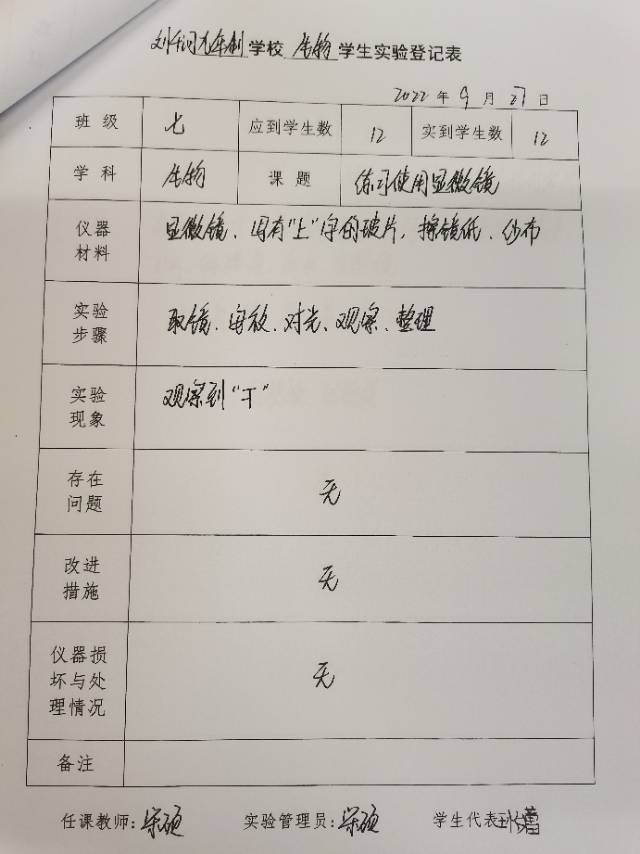 刘千问九年制学校 生物 学生实验登记表
2022 年 9 月 27 日
班级 七 应到学生数 12 实到学生数 12
学科 生物 课题 练习使用显微镜
仪器材料 显微镜、写有"上"字的玻片,擦镜纸、纱布
实验步骤 取镜、安放、对光、观察、整理
实验现象 观察到"T"
存在问题 无
改进措施 无
仪器损坏与处理情况 无
备注
任课教师: 宋硕 实验管理员: 宋硕 学生代表